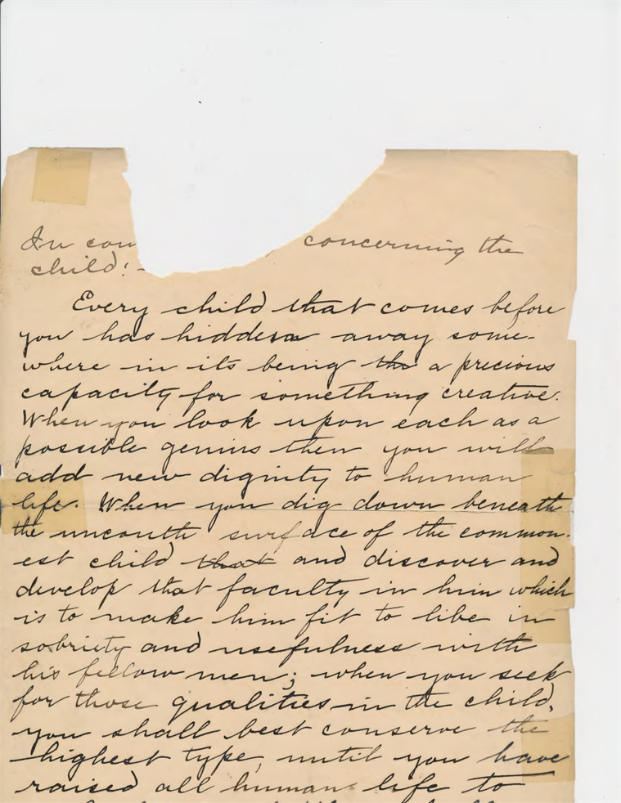 In con concerning the
child:-
Every child that comes before
you has hidden away some-
where in its being tha a precious
capacity for something creative.
When you look upon each as a
possible genius then you will
add new dignity to human
life. When you dig down beneath
the uncouth surface of the common-
est child that and discover and
develop that faculty in him which
is to make him fit to libe in
sobriety and usefulness with
his fellow men; when you seek
for those qualities in the child,
you shall best conserve the
highest type, until you have
raised all human life to